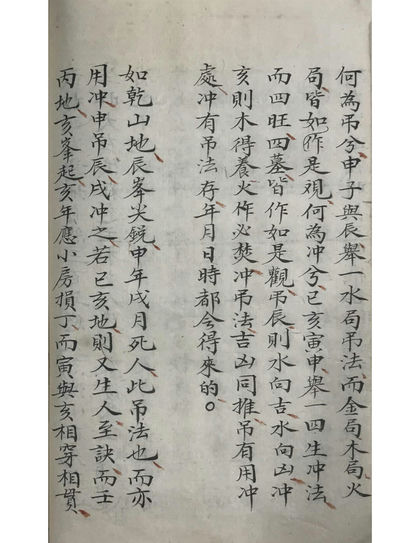 何為吊兮申子與辰舉一水局吊法而金局木局火
局皆如作是視何為冲兮已亥寅申舉一四生冲法
而四旺四墓皆作如是觀吊辰則水向吉水向凶冲
亥則木得養火作必焚冲吊法吉凶同推吊有用冲
處冲有吊法存年月日時都会得來的。
如乾山地辰峯尖銳申年戌月死人此吊法也而亦
用冲申吊辰戌冲之若巳亥地則又生人至訣而壬
丙地亥峯起亥年應小房損丁而寅與亥相穿相貫